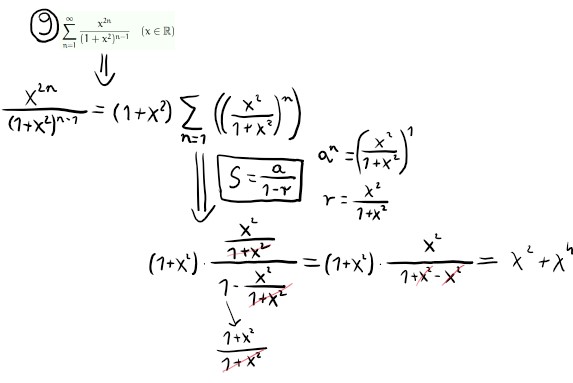 9 ∑_{n=1}^{∞} x^{2n}/(1 + x²)^{n−1} (x ∈ ℝ)
⇓
x^{2n}/(1+x²)^{n-1} = (1+x²) ∑_{n=1} ((x²/(1+x²))^n)
⇓
S = a/(1-r)
a^n = (x²/(1+x²))^1
r = x²/(1+x²)
(1+x²) · (x²/(1+x²))/(1 - x²/(1+x²)) = (1+x²) · x²/(1+x²-x²) = x² + x⁴
(1+x²)/(1+x²)